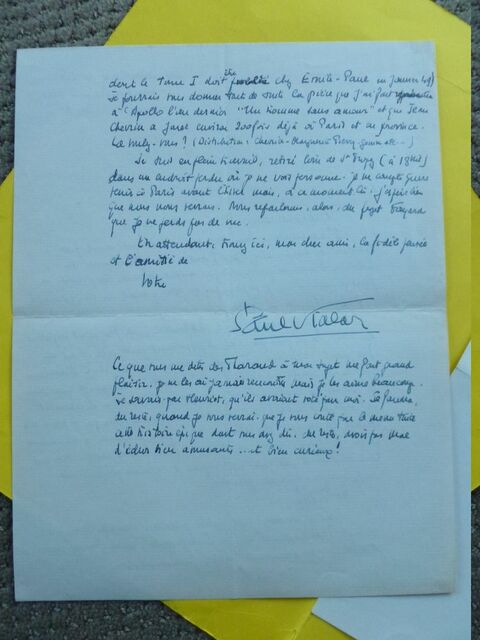 dont le Tome I doit être chez Émile-Paul en janvier 48)
Je pourrais vous donner tout de suite la pièce que j'ai fait
à l'Apollo l'an dernier "Un homme sans amour" et que Jean
Chevrin a jouée environ 200 fois déjà à Paris et en province.
Le voulez-vous? (Distribution: Chevrin - Marguerite
Je suis en plein travail, retiré loin de St Tropez (à 18 km)
dans un endroit perdu où je ne vois personne. Je ne compte guère
venir à Paris avant mais, à ce moment là, j'espère bien
que nous nous verrons. Nous reparlerons, alors, du projet Fayard
que je ne perds pas de vue.
En attendant, trouvez ici, mon cher ami, la fidèle pensée
et l'amitié de
Votre
St Paul Vialar
Ce que vous me dites des Tharaud à mon sujet me fait grand
plaisir. Je ne les ai jamais rencontrés mais je les aime beaucoup.
Je savais par qu'ils avaient voté pour moi. Il faudra,
du reste, quand je vous verrai que je vous conte par le menu toute
cette histoire épique dont vous avez dû, du reste, avoir pas mal
d'échos bien amusants... et bien curieux!